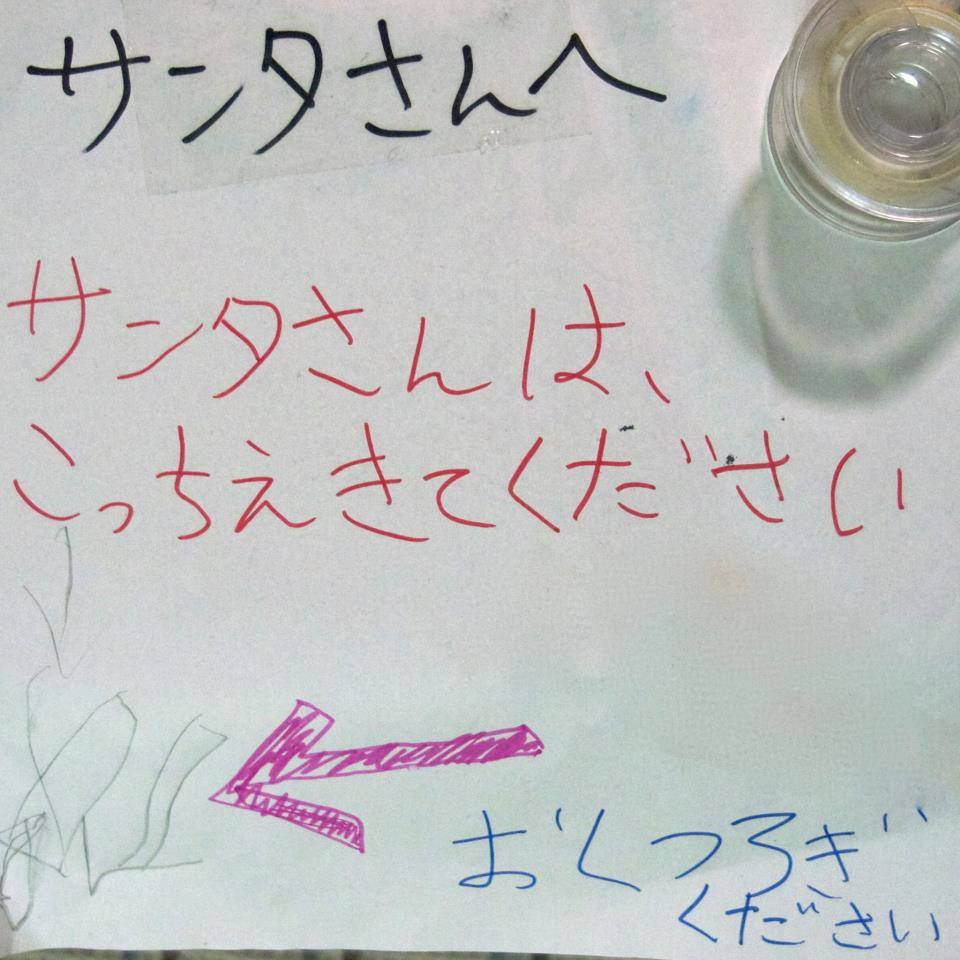 サンタさんへ
サンタさんは、
こっちえきてください
おくつろぎ
ください